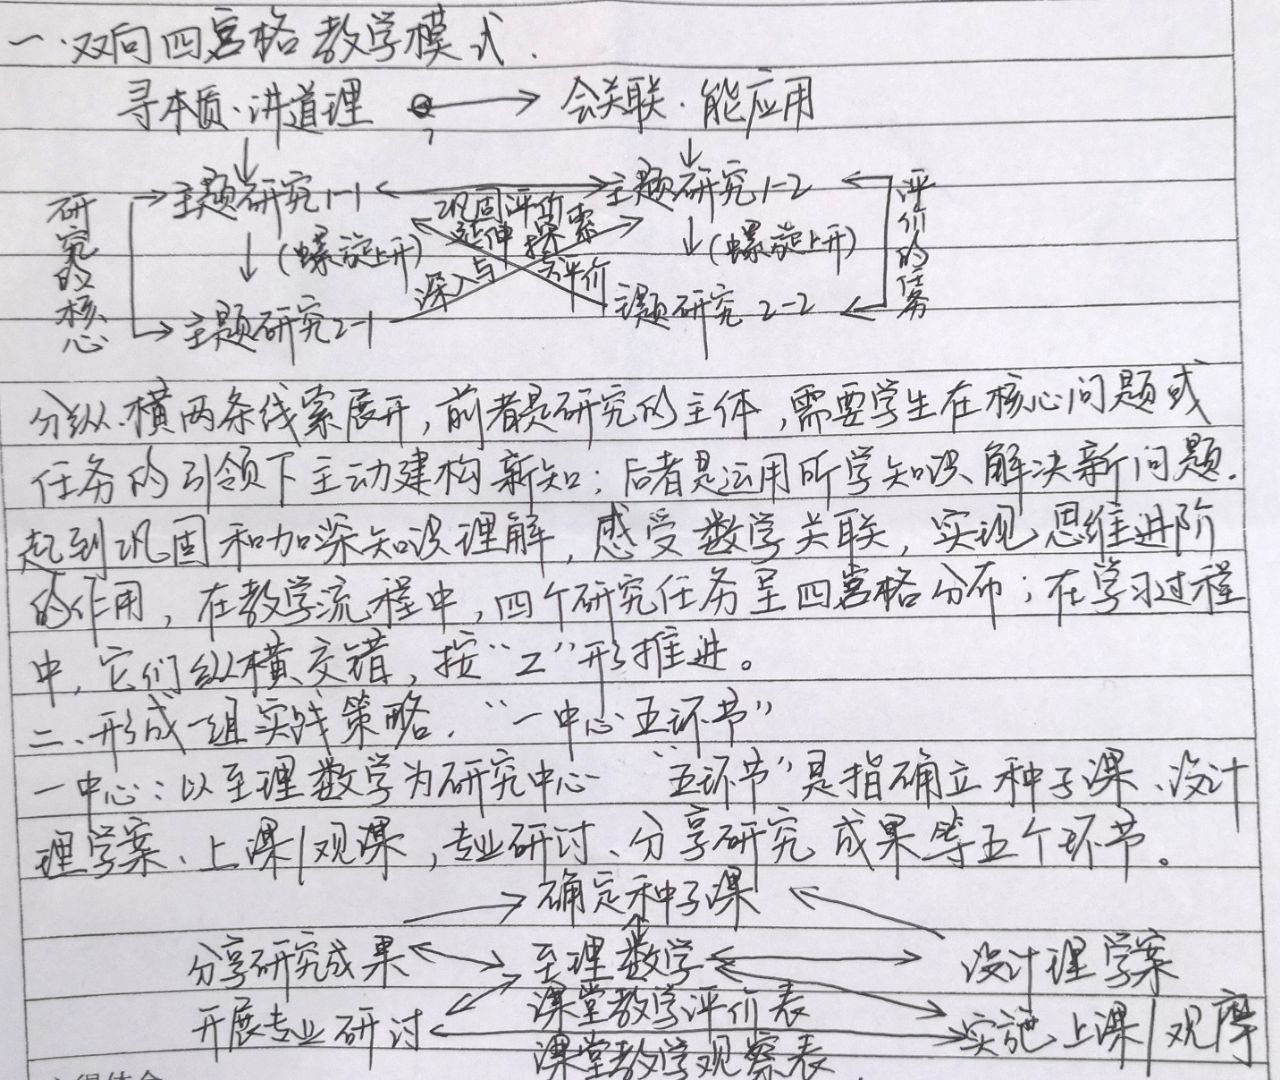 一、双向四宫格教学模式.
寻本质·讲道理 会关联·能应用
主题研究1-1 主题研究1-2
研究的核心 巩固评价 评价的任务
延伸探索
(螺旋上升) (螺旋上升)
深入与评价
主题研究2-1 主题研究2-2
分纵、横两条线索展开，前者是研究的主体，需要学生在核心问题或
任务的引领下主动建构新知；后者是运用所学知识解决新问题.
起到巩固和加深知识理解，感受数学关联，实现思维进阶
的作用，在教学流程中，四个研究任务呈四宫格分布；在学习过程
中，它们纵横交错，按“Z”形推进。
二、形成一组实践策略.“一中心五环节”
一中心：以至理数学为研究中心 “五环节”是指确立种子课、设计
理学案、上课/观课，专业研讨、分享研究成果等五个环节。
确定种子课
分享研究成果 至理数学 设计理学案
课堂教学评价表
开展专业研讨 实施上课/观摩
课堂教学观察表